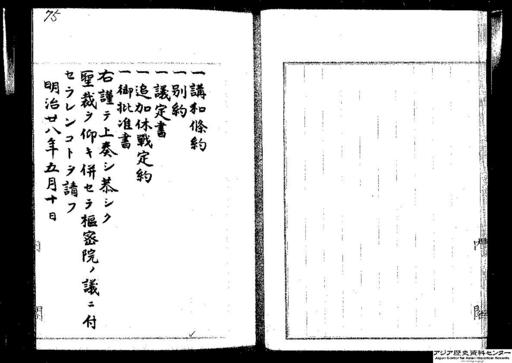 75
一講和條約
一別約
一議定書
一追加休戰定約
一御批准書
右謹テ上奏シ恭シク
聖裁ヲ仰キ併セテ樞密院ノ議ニ付
セラレンコトヲ請フ
明治廿八年五月十日
アジア歴史資料センター
Japan Center for Asian Historical Records